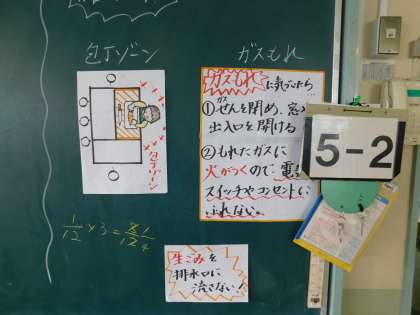 包丁ゾーン
ガスもれ
包丁ゾーン
ガスもれに気づいたら…
①ガスせんを閉め、窓
出入口を開ける
②もれたガスに
火がつくので、電
スイッチやコンセントに
ふれない。
5-2
1/12 × 3 =
生ごみを
排水口に
流さない!